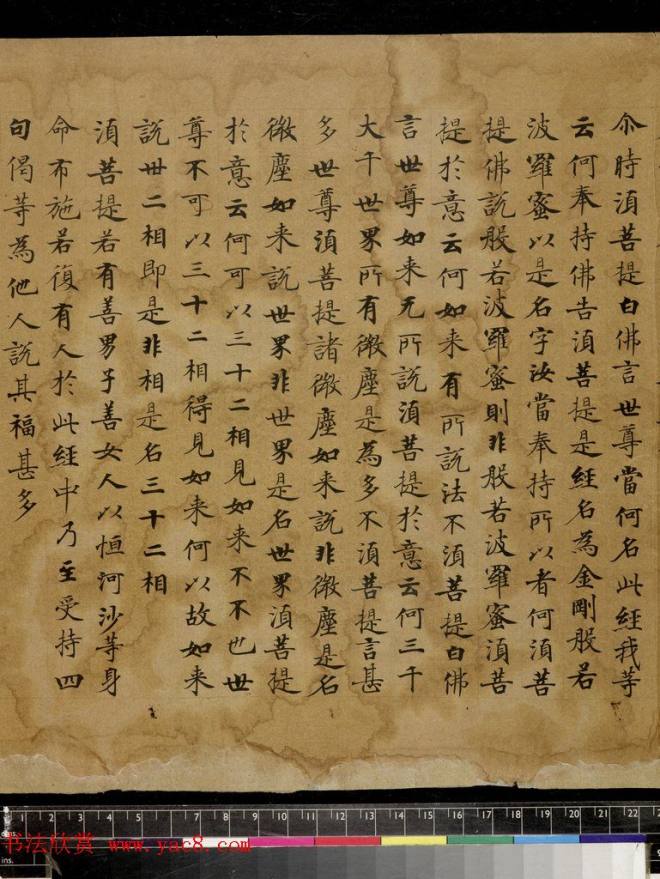 尒時湏菩提白佛言世尊當何名此經我等
云何奉持佛告湏菩提是經名為金剛般若
波羅蜜以是名字汝當奉持所以者何湏菩
提佛說般若波羅蜜則非般若波羅蜜湏菩
提於意云何如来有所說法不湏菩提白佛
言世尊如来无所說湏菩提於意云何三千
大千世界所有微塵是為多不湏菩提言甚
多世尊湏菩提諸微塵如来說非微塵是名
微塵如来說世界非世界是名世界湏菩提
於意云何可以三十二相見如来不不也世
尊不可以三十二相得見如来何以故如来
說卅二相即是非相是名三十二相
湏菩提若有善男子善女人以恒河沙等身
命布施若復有人於此經中乃至受持四
句偈等為他人說其福甚多
1 2 3 4 5 6 7 8 9 10 11 12 13 14 15 16 17 18 19 20 21 22
ins.
书法欣赏 www.yac8.com